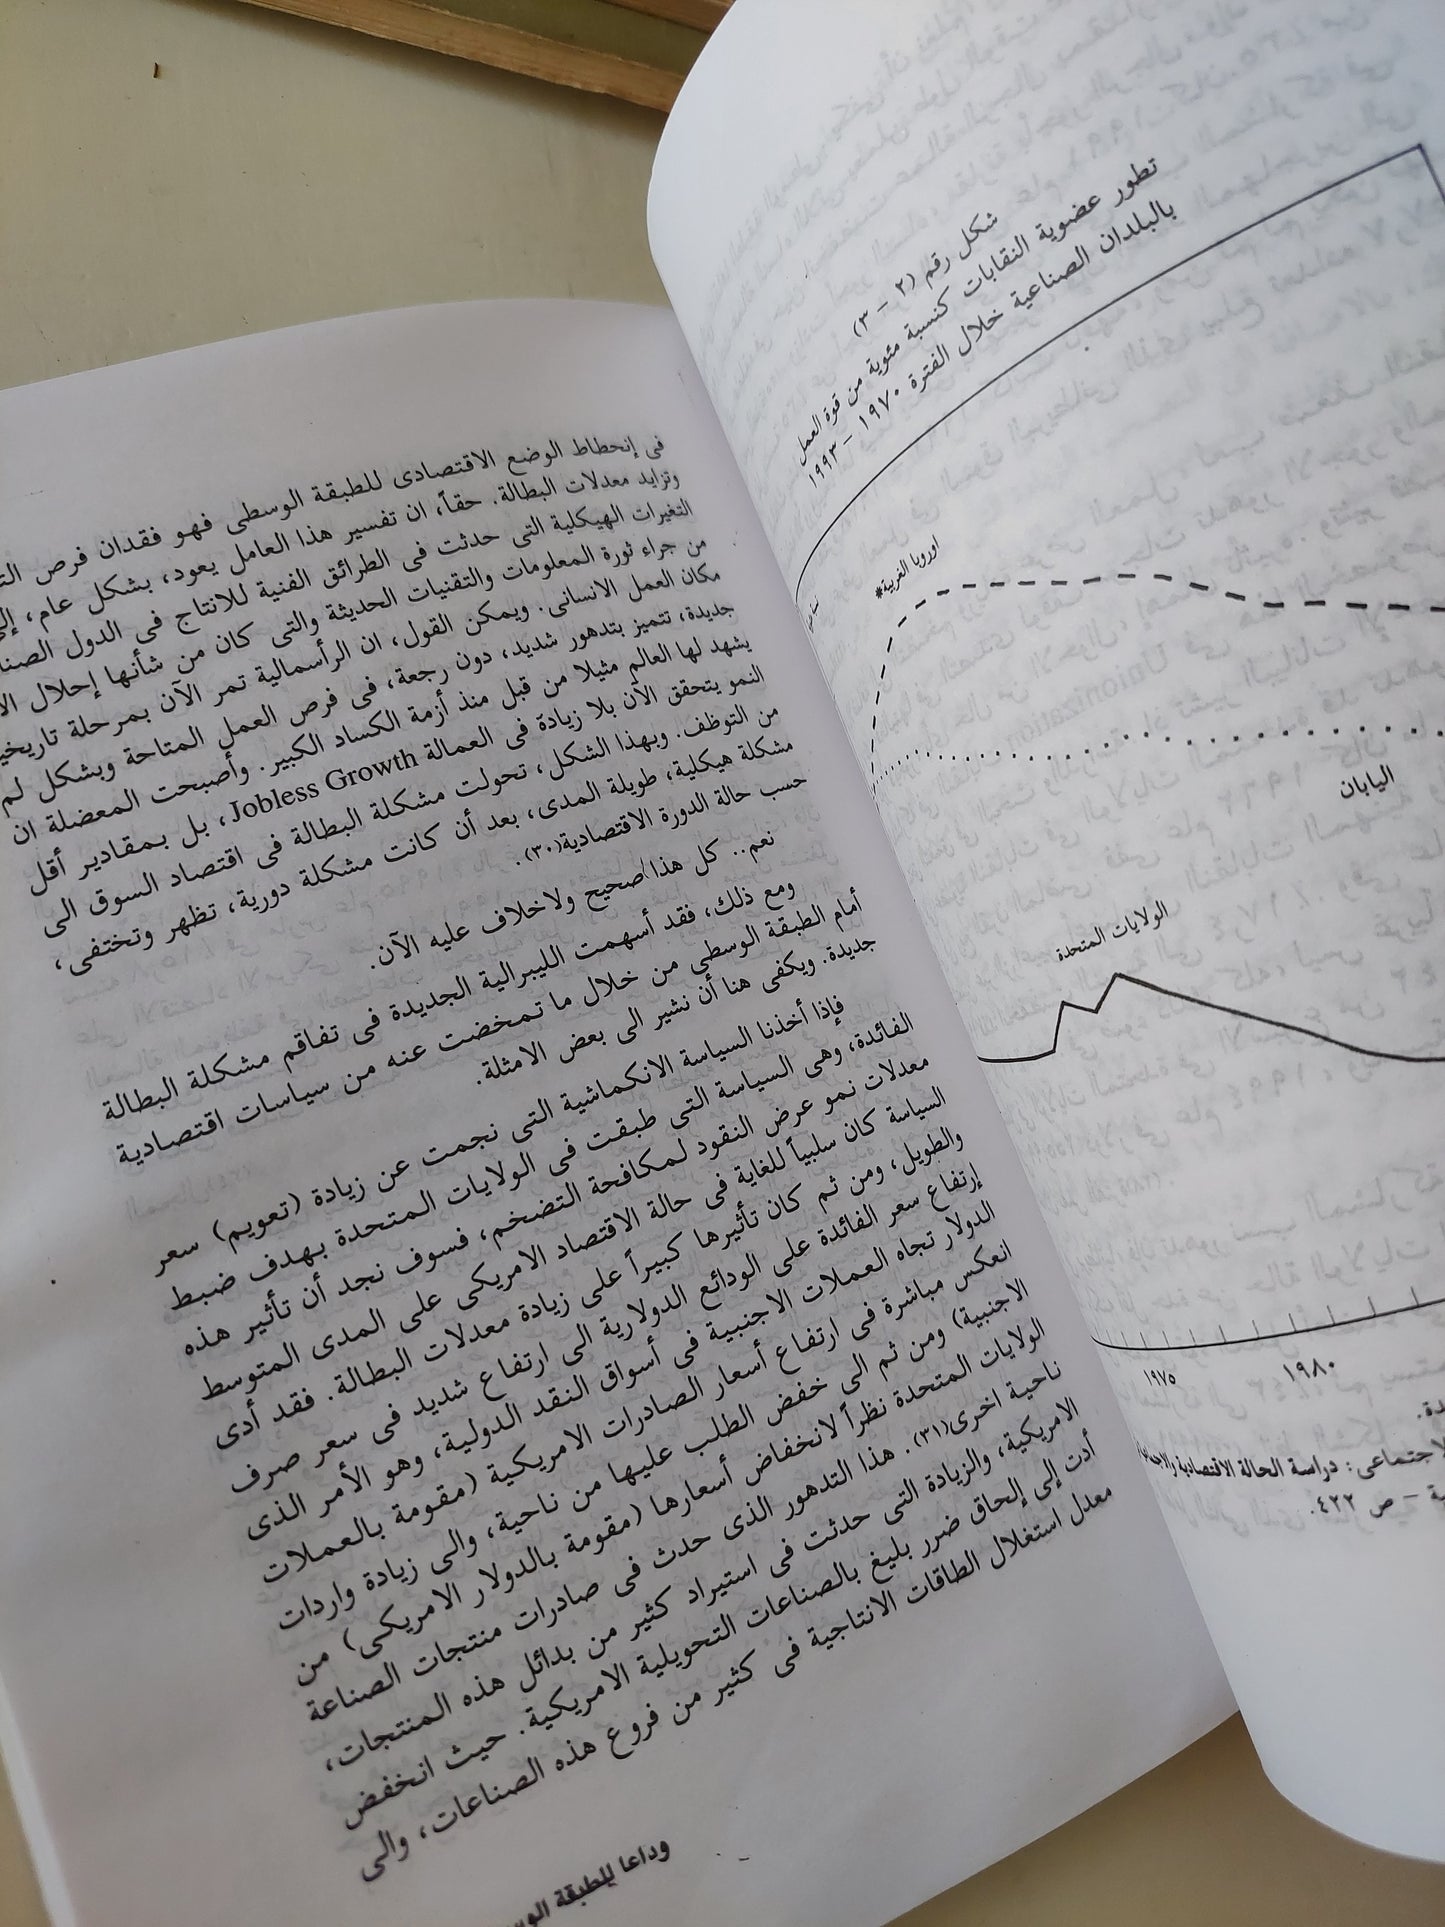 شكل رقم (٢ – ٣)
تطور عضوية النقابات كنسبة مئوية من قوة العمل
بالبلدان الصناعية خلال الفترة ١٩٧٠ – ١٩٩٣
اوروبا الغربية*
اليابان
الولايات المتحدة
١٩٧٥
١٩٨٠
دراسة الحالة الاقتصادية
ص ٤٢٢.
فى إنحطاط الوضع الاقتصادى للطبقة الوسطى فهو فقدان فرص
وتزايد معدلات البطالة. حقاً، ان تفسير هذا العامل يعود، بشكل عام،
التغيرات الهيكلية التى حدثت فى الطرائق الفنية للانتاج فى الدول
من جراء ثورة المعلومات والتقنيات الحديثة والتى كان من شأنها إحلال
مكان العمل الانسانى. ويمكن القول، ان الرأسمالية تمر الآن بمرحلة
جديدة، تتميز بتدهور شديد، دون رجعة، فى فرص العمل المتاحة وبشكل لم
يشهد لها العالم مثيلا من قبل منذ أزمة الكساد الكبير. وأصبحت المعضلة ان
النمو يتحقق الآن بلا زيادة فى العمالة Jobless Growth، بل بمقادير أقل
من التوظف. وبهذا الشكل، تحولت مشكلة البطالة فى اقتصاد السوق الى
مشكلة هيكلية، طويلة المدى، بعد أن كانت مشكلة دورية، تظهر وتختفى،
حسب حالة الدورة الاقتصادية(٣٠).
نعم.. كل هذا صحيح ولاخلاف عليه الآن.
ومع ذلك، فقد أسهمت الليبرالية الجديدة فى تفاقم مشكلة البطالة
أمام الطبقة الوسطى من خلال ما تمخضت عنه من سياسات اقتصادية
جديدة. ويكفى هنا أن نشير الى بعض الامثلة.
فإذا أخذنا السياسة الانكماشية التى نجمت عن زيادة (تعويم) سعر
الفائدة، وهى السياسة التى طبقت فى الولايات المتحدة بهدف ضبط
معدلات نمو عرض النقود لمكافحة التضخم، فسوف نجد أن تأثير هذه
السياسة كان سلبياً للغاية فى حالة الاقتصاد الامريكى على المدى المتوسط
والطويل، ومن ثم كان تأثيرها كبيراً على زيادة معدلات البطالة. فقد أدى
إرتفاع سعر الفائدة على الودائع الدولارية الى ارتفاع شديد فى سعر صرف
الدولار تجاه العملات الاجنبية فى أسواق النقد الدولية، وهو الأمر الذى
انعكس مباشرة فى ارتفاع أسعار الصادرات الامريكية (مقومة بالعملات
الاجنبية) ومن ثم الى خفض الطلب عليها من ناحية، والى زيادة واردات
الولايات المتحدة نظراً لانخفاض أسعارها (مقومة بالدولار الامريكى) من
ناحية اخرى(٣١). هذا التدهور الذى حدث فى صادرات منتجات الصناعة
الامريكية، والزيادة التى حدثت فى استيراد كثير من بدائل هذه المنتجات،
أدت إلى إلحاق ضرر بليغ بالصناعات التحويلية الامريكية. حيث انخفض
معدل استغلال الطاقات الانتاجية فى كثير من فروع هذه الصناعات، والى
وداعا للطبقة